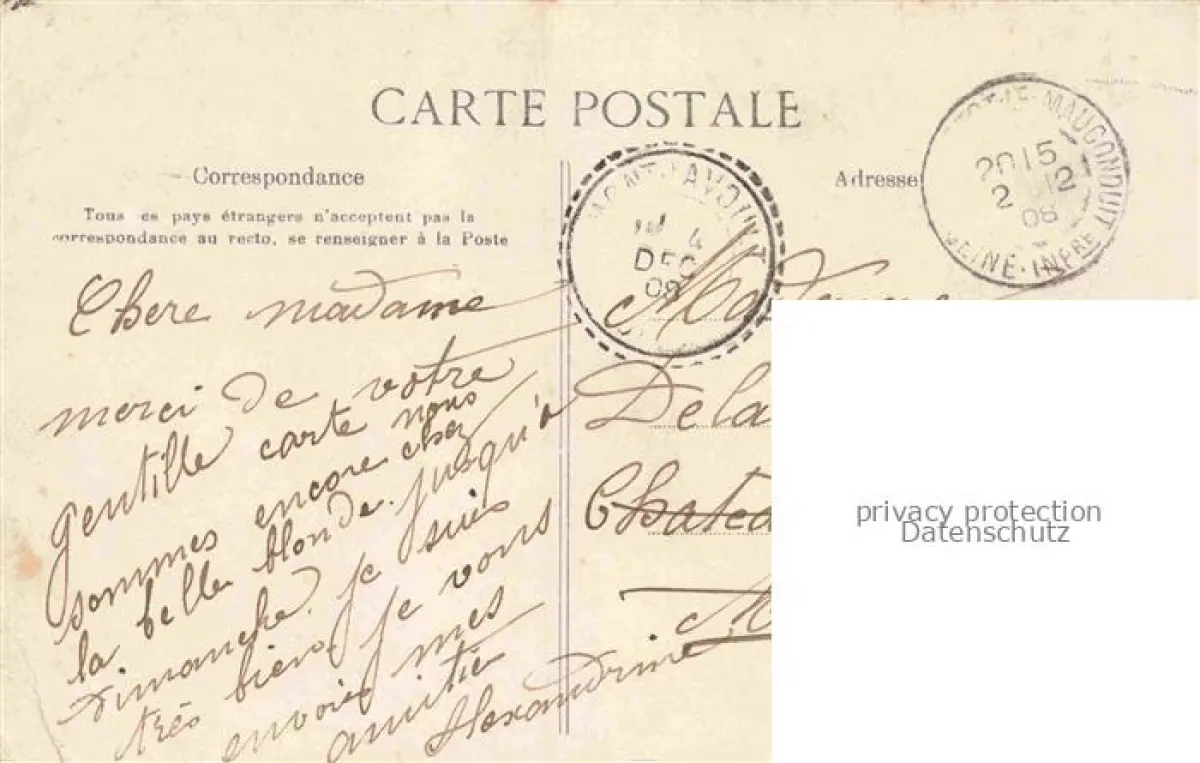 CARTE POSTALE
Correspondance
Tous les pays étrangers n'acceptent pas la
correspondance au recto, se renseigner à la Poste
Chere madame
merci de votre
gentille carte nous
sommes encore chez
la belle blonde. jusqu'à
Dimanche. je suis
très bien. je vous
envoie mes
amitié
Alexandrine
4
DEC
08
Adresse
LE-MAUCONDUIT
20 15
2 12
08
SEINE-INFRE
Madame
Dela
Chatea
M
privacy protection
Datenschutz